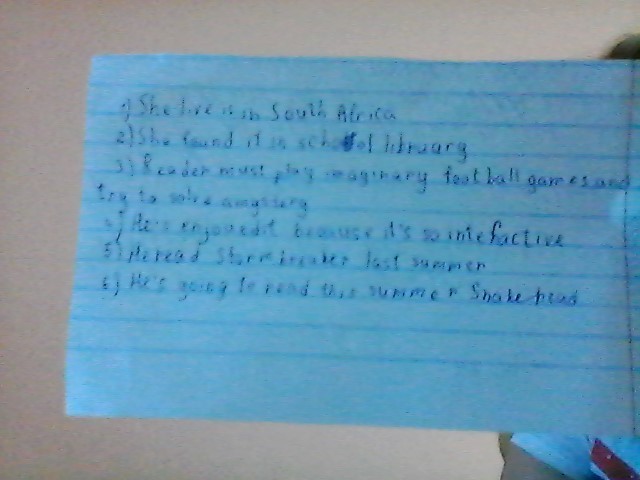 1) She live is in South Africa
2) She found it in school library
3) Reader must play imaginary football games and
try to solve a mystery
4) He's enjoyed it because it's so interactive
5) He read Stormbreaker last summer
6) He's going to read this summer Snakehead